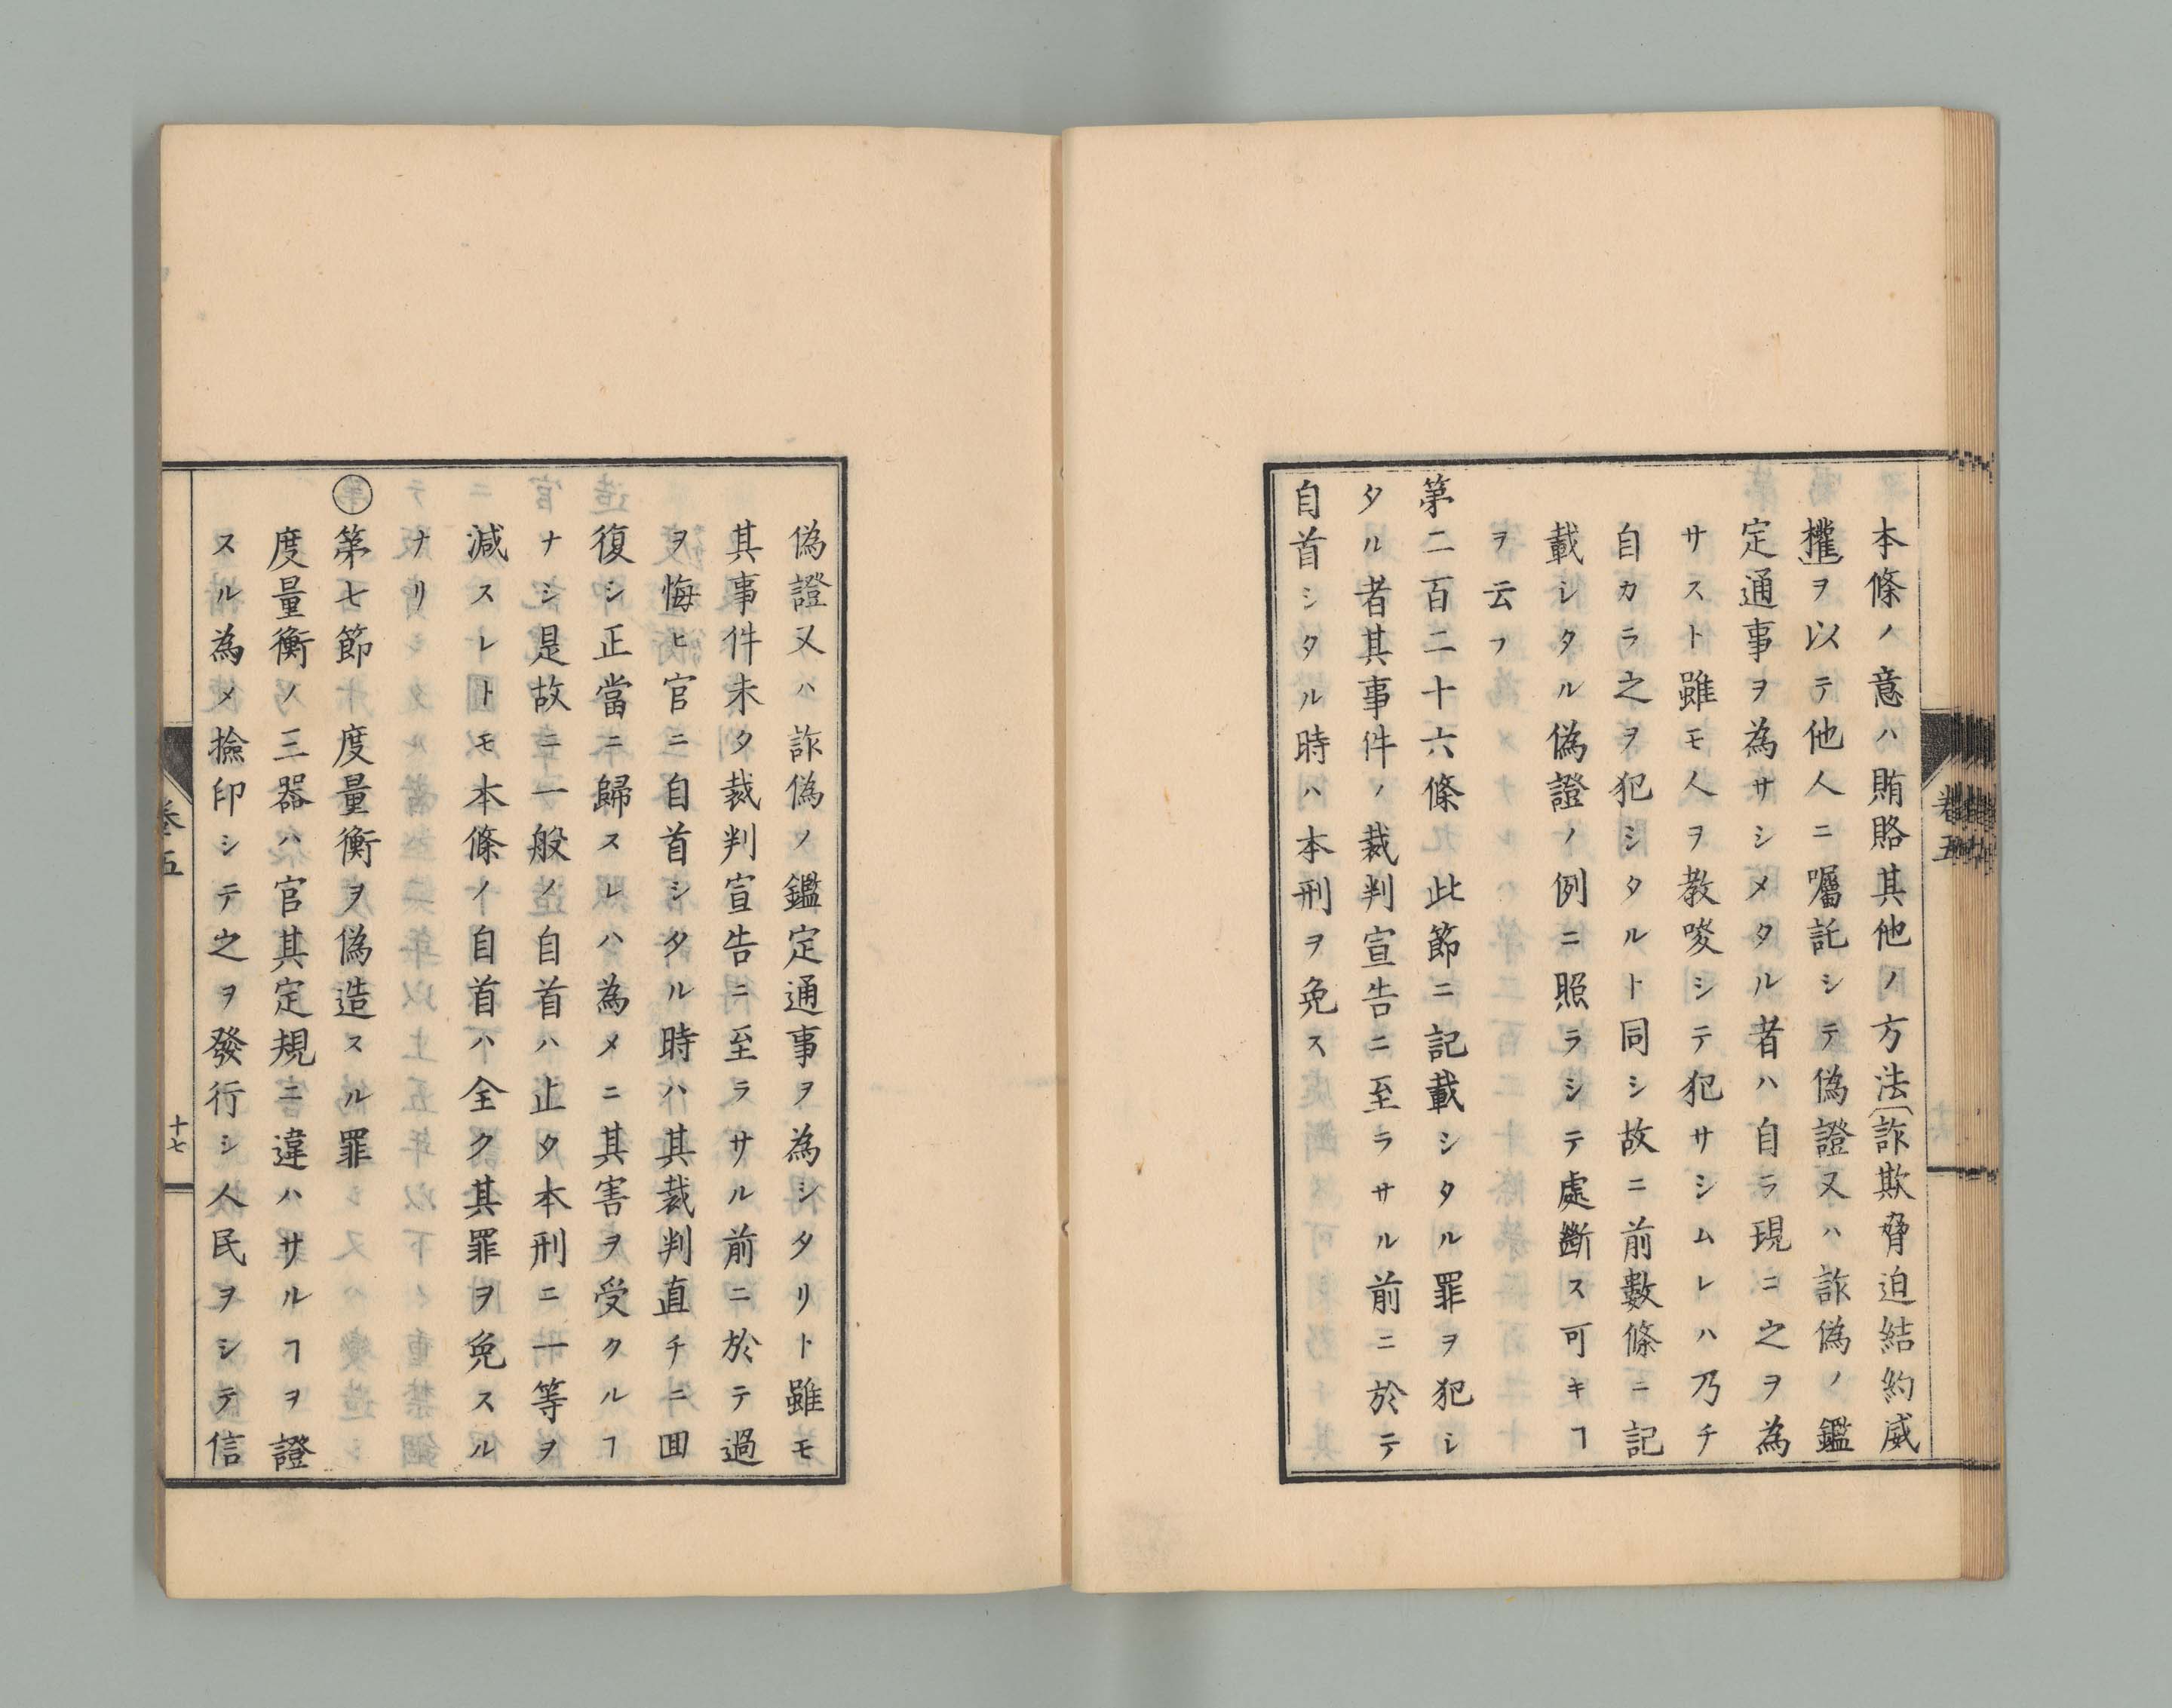 本條ノ意ハ賄賂其他ノ方法(詐欺脅迫結約威
權)ヲ以テ他人ニ囑託シテ偽證又ハ詐偽ノ鑑
定通事ヲ為サシメタル者ハ自ラ現ニ之ヲ為
サスト雖モ人ヲ教唆シテ犯サシムレハ乃チ
自カラ之ヲ犯シタルト同シ故ニ前數條ニ記
載シタル偽證ノ例ニ照ラシテ處斷ス可キヿ
ヲ云フ
第二百二十六條此節ニ記載シタル罪ヲ犯シ
タル者其事件ノ裁判宣告ニ至ラサル前ニ於テ
自首シタル時ハ本刑ヲ免ス
卷五
偽證又ハ詐偽ノ鑑定通事ヲ為シタリト雖モ
其事件未タ裁判宣告ニ至ラサル前ニ於テ過
ヲ悔ヒ官ニ自首シタル時ハ其裁判直チニ囬
復シ正當ニ歸スレハ為メニ其害ヲ受クルヿ
ナシ是故ニ一般ノ自首ハ止タ本刑ニ一等ヲ
減スレトモ本條ノ自首ハ全ク其罪ヲ免スル
ナリ
○第七節 度量衡ヲ偽造スル罪
度量衡ノ三器ハ官其定規ニ違ハサルヿヲ證
スル為メ撿印シテ之ヲ發行シ人民ヲシテ信
卷五
十七